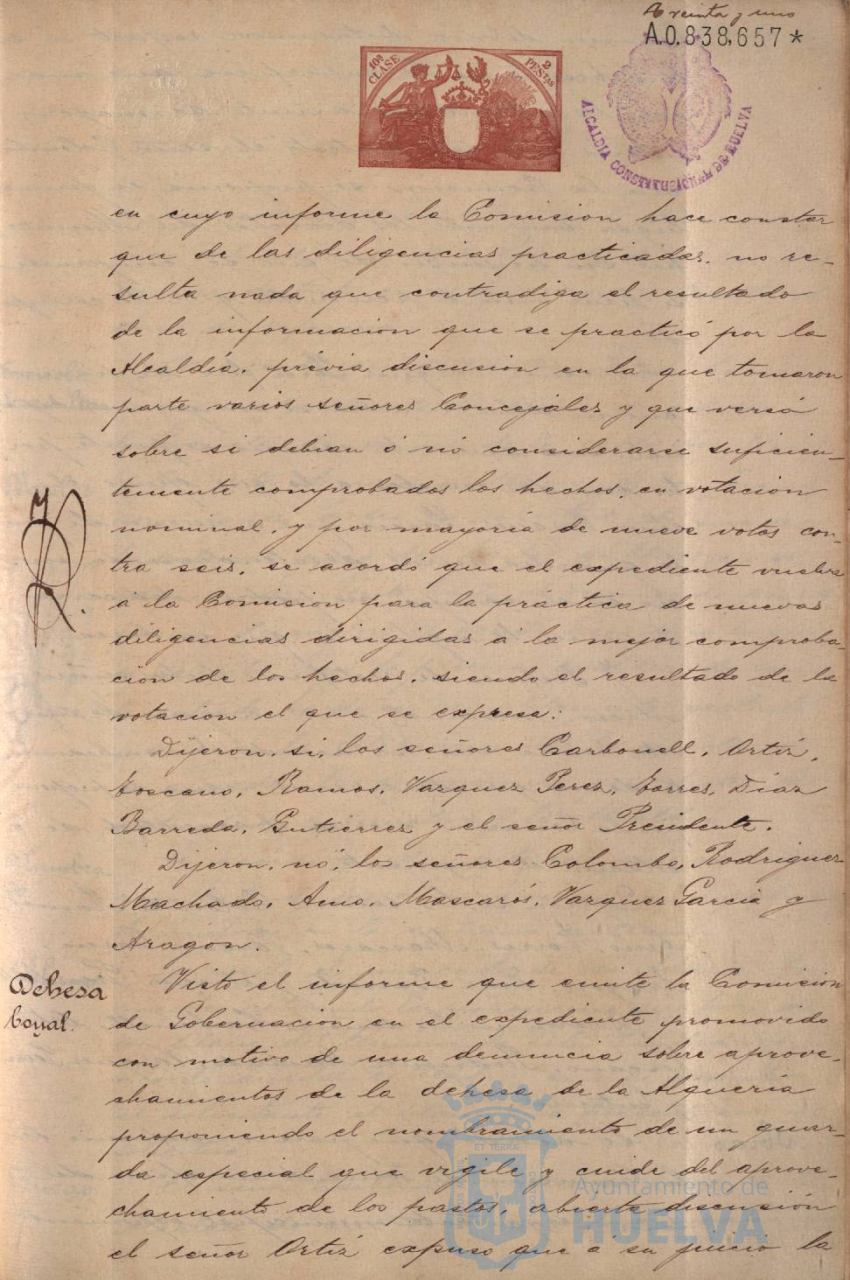 treinta y uno
A.0.838,657*
10ª CLASE
2 PESTAS
ALCALDIA CONSTITUCIONAL DE HUELVA
en cuyo informe la Comision hace constar
que de las diligencias practicadas, no re-
sulta nada que contradiga el resultado
de la informacion que se practicó por la
Alcaldía, prévia discusion en la que tomaron
parte varios señores Concejales y que versó
sobre si debian ó nó considerarse suficien-
temente comprobados los hechos, en votacion
nominal, y por mayoría de nueve votos con-
tra seis, se acordó que el expediente vuelva
á la Comision para la práctica de nuevas
diligencias dirigidas á la mejor comproba-
cion de los hechos, siendo el resultado de la
votacion el que se expresa:
Dijeron, si, los señores Carbonell, Ortiz,
Toscano, Ramos, Vazquez Perez, Torres, Díaz
Barreda, Gutiérrez y el señor Presidente.
Dijeron, nó, los señores Colombo, Rodriguez
Machado, Amo, Mascarós, Vazquez Garcia y
Aragon.
Dehesa
boyal.
Visto el informe que emite la Comision
de Gobernacion en el expediente promovido
con motivo de una denuncia sobre aprove-
chamientos de la dehesa de la Alquería
proponiendo el nombramiento de un guar-
da especial que vigile y cuide del aprove-
chamiento de los pastos, abierta discusión
el señor Ortiz expuso que á su juicio la
Ayuntamiento de
HUELVA